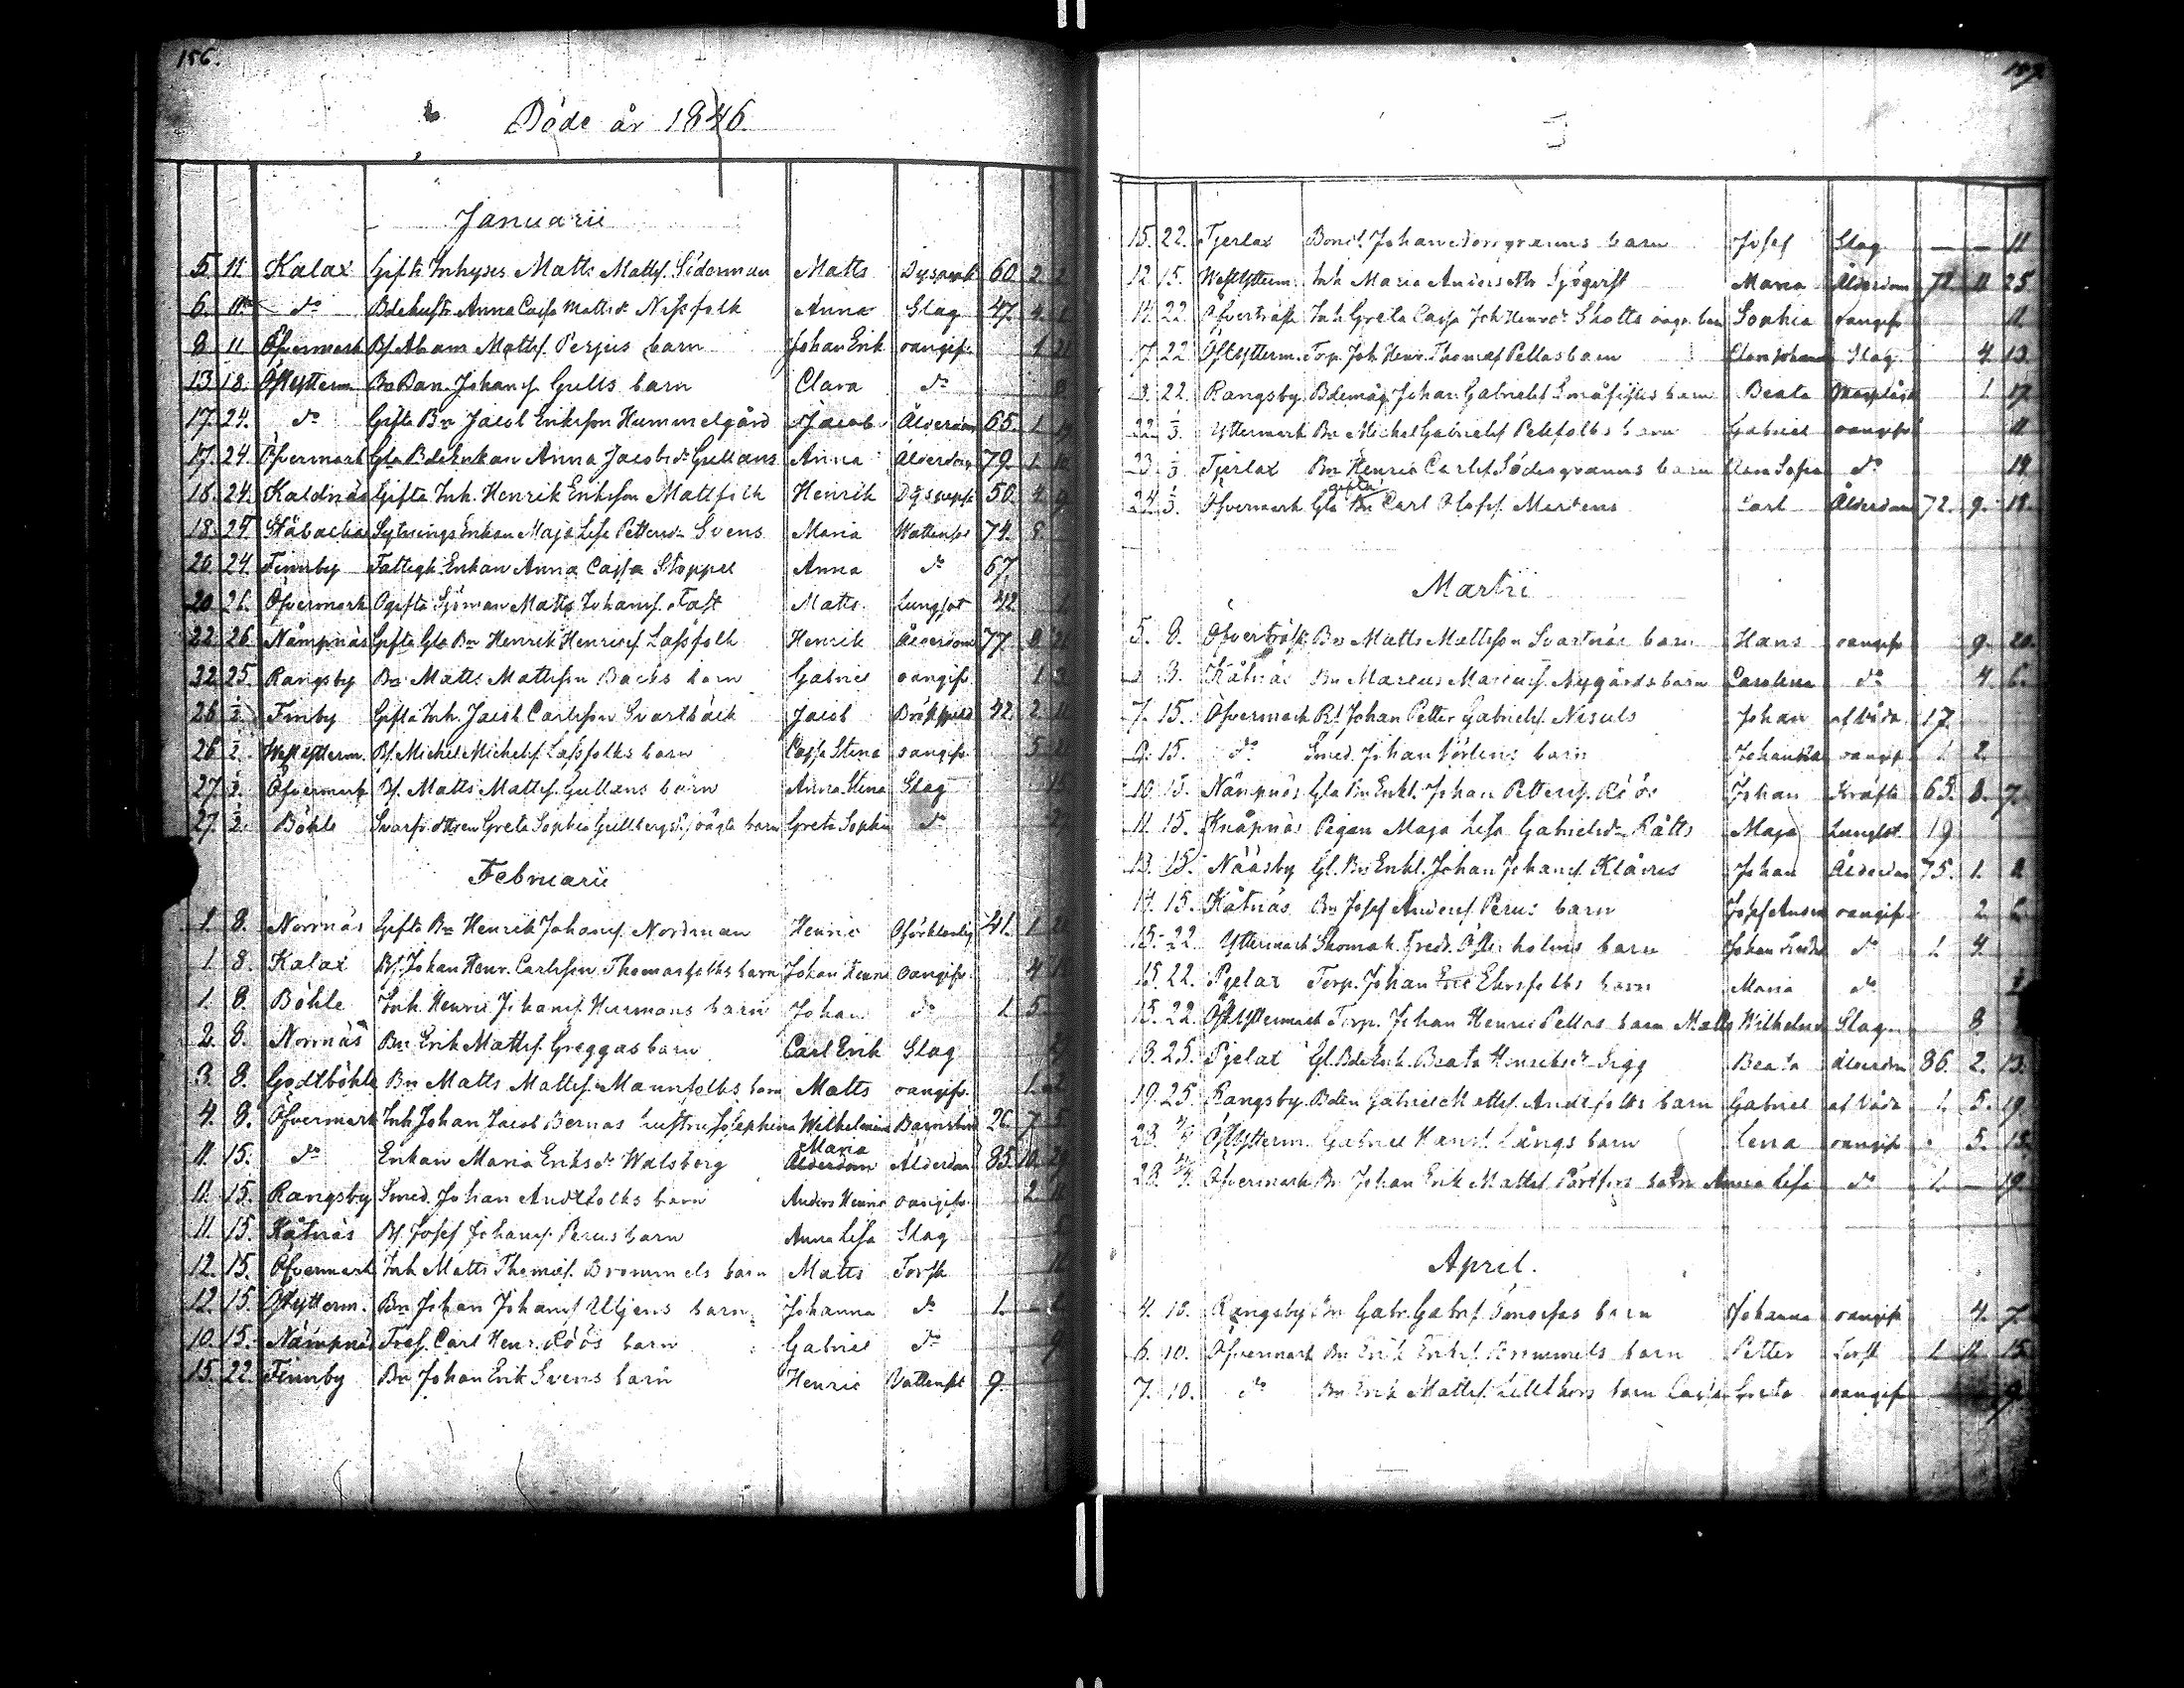 156.
Döde år 1846.
Januarii
5. 11 Kalax Gifte Inhyses Matts Mattss. Söderman Matts 60. 2. 2
6. 11 do Anna Cajsa Mattsdr Nissfolk Anna Slag 47. 4. 1
8 11 Öfvermark Bs. Abram Mattss. Perjus barn Johan Erik oangifv. 1 21
13. 18. Östytterm Bn Dan. Johanss. Gulls barn Clara do 8
17. 24. do Gifte Bn Jacob Eriksson Hummelgård Jacob Ålderdom 65. 1.
17. 24. Öfvermark Gla Bdeenkan Anna Jacobsdr Gullans Anna Ålderdom 79. 1. 10
18. 24. Kaldnäs Gifte Inh. Henrik Eriksson Mattfolk Henrik 50. 4. 9
18. 24. Sytningsenkan Maja Lisa Pettersdr Svens Maria Wattensot 74. 8.
26. 24. Finnby Fattigh. Enkan Anna Cajsa Stoppel Anna do 67.
20. 26. Öfvermark Ogifta Sjöman Matts Johanss. Fast Matts Lungsot 42
22. 26. Nämpnäs Gifta Gla Bn Henrik Henricss. Lassfolk Henrik Ålderdom 77. 8
22. 25. Rangsby Bn Matts Mattsson Backs barn Gabriel oangifv. 1 3
26 1/2. Finby Gifta Inh. Jacob Carlsson Svartbäck Jacob 42. 2. 11
26 1/2. Westytterm. Bs. Michel Michelss. Lassfolks barn Cajsa Stina oangifv. 5
27. 1/2. Öfvermark Bs. Matts Mattss. Gullans barn Anna Stina Slag 15
27. 1/2. Böhle Greta Sophia Gullbergs oägta barn Greta Sophia do
Februarii
1. 8. Norrnäs Gifta Bn Henrik Johanss. Nordman Henric Oförklarlig 41. 1.
1. 8. Kalax Bs. Johan Henr. Carlsson Thomasfolks barn Johan Henric oangifv. 4
1. 8. Böhle Inh. Henric Johanss. Hermans barn Johan do 1. 5
2. 8. Norrnäs Bn Erik Mattss. Greggas barn Carl Erik Slag
3. 8. Godtböhle Bn Matts Mattss. Mannfolks barn Matts oangifv. 1.
4. 8. Öfvermark Inh. Johan Jacob Bernas hustru Josephina Wilhelmina Barnsbörd 26. 7. 5
11. 15. do Enkan Maria Eriksdr Walsberg Maria Ålderdom Ålderdom 85. 10. 29
11. 15. Rangsby Smed. Johan Andtfolks barn Anders Henric oangifv. 2.
11. 15. Kåtnäs Bs. Josef Johanss. Perus barn Anna Lisa Slag
12. 15. Öfvermark Inh Matts Thomass. Brommels barn Matts Torsk
12. 15. Östytterm. Bn Johan Johanss. Utgens barn Johanna do 1.
10. 15. Nämpnäs Carl Henr. Röös barn Gabriel do 9
15. 22. Finnby Bn Johan Erik Svens barn Henric Vattensot 9.
15. 22. Tjerlax Johan Södergranns barn Josef Slag — — 11
12. 15. Westytterm. Inh. Maria Andersdtr Sjöqvist Maria Ålderdom 72. 11. 25.
14. 22. Öfverträsk Inh. Greta Cajsa Joh. Henrsdr Skotts oägta barn Sophia oangifv. 11.
17. 22. Östytterm. Torp. Joh. Henr. Thomass. Pellas barn Slag 4. 13.
22. Rangsby Johan Gabrielss. barn Beata 1. 17.
22. 1/3. Yttermark Bn Michel Gabrielss. Pellfolks barn Gabriel oangifv. 11
23. 1/3 Tjerlax Bn Henric Carlss. Södergranns barn do 14
24. 1/3. Öfvermark Gla gifta Bn Carl Olofss. Mertens Carl Ålderdom 72. 9. 18.
Martii
5. 8. Öfverträsk Bn Matts Mattsson Svartnäs barn Hans oangifv 9. 20.
8. Kåtnäs Bn Marcus Marcuss. Nygårds barn Carolina do 4. 6.
7. 15. Öfvermark Bs. Johan Petter Gabrielss. Nisuls Johan af våda 17.
9. 15. do Smed. Johan Norlens barn Johanna oangifv 1. 2.
10. 15. Nämpnäs Gla Bn Enkl. Johan Petterss. Röös Johan Kräfta 65. 8. 7.
11. 15. Knåpnäs Pigan Maja Lisa Gabrielsdr Rätts Maja Lungsot 19
13. 15. Nääsby Gl. Bn Enkl. Johan Johanss. Klåvus Johan Ålderdom 75. 1.
14. 15. Kåtnäs Bn Josef Anderss. Perus barn Josef Anders oangifv. 2.
15. 22 Yttermark Skomak. Fredr. Österholms barn Johan Fredric do 1. 4.
15. 22. Pjelax Torp. Johan Ehrsfolks barn Maria do
15. 22. Östyttermark Torp. Johan Henric Pellas barn Matts Wilhelm Slag 8
18. 25. Pjelax Gl. Bdeenk. Beata Henriksdr Sigg Beata Ålderdom 86. 2. 13.
19. 25. Rangsby Bden Gabriel Mattss. Andtfolks barn Gabriel af våda 1. 5. 19.
23. Östytterm. Gabriel Hanss. Långs barn Lena oangifv 5. 15.
28. Öfvermark Bn Johan Erik Mattss. Pörtfors barn Anna Lisa do 1. — 19.
April.
4. 10. Rangsby Bn Gabr. Gabrss. barn Johanna oangifv 4. 7.
6. 10. Öfvermark Bn Erik Erikss. Brommels barn Petter Torsk 1. 11. 15.
7. 10. do Bn Erik Mattss. Lillthors barn Cajsa Greta oangifv 9.